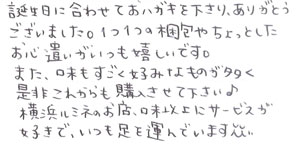 誕生日に合わせておハガキを下さり、ありがとう
ございました。1つ1つの梱包やちょっとした
お心遣いがいつも嬉しいです。
また、味もすごく好みなものが多く
是非これからも購入させて下さい♪
横浜ルミネのお店、味以上にサービスが
好きで、いつも足を運んでいます